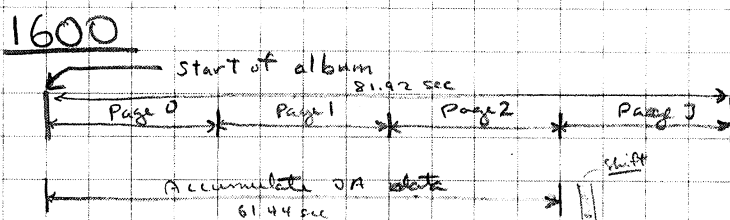 1600
Start of album
81.92 sec
Page 0 Page 1 Page 2 Page 3
shift
Accumulate DA data
61.44 sec